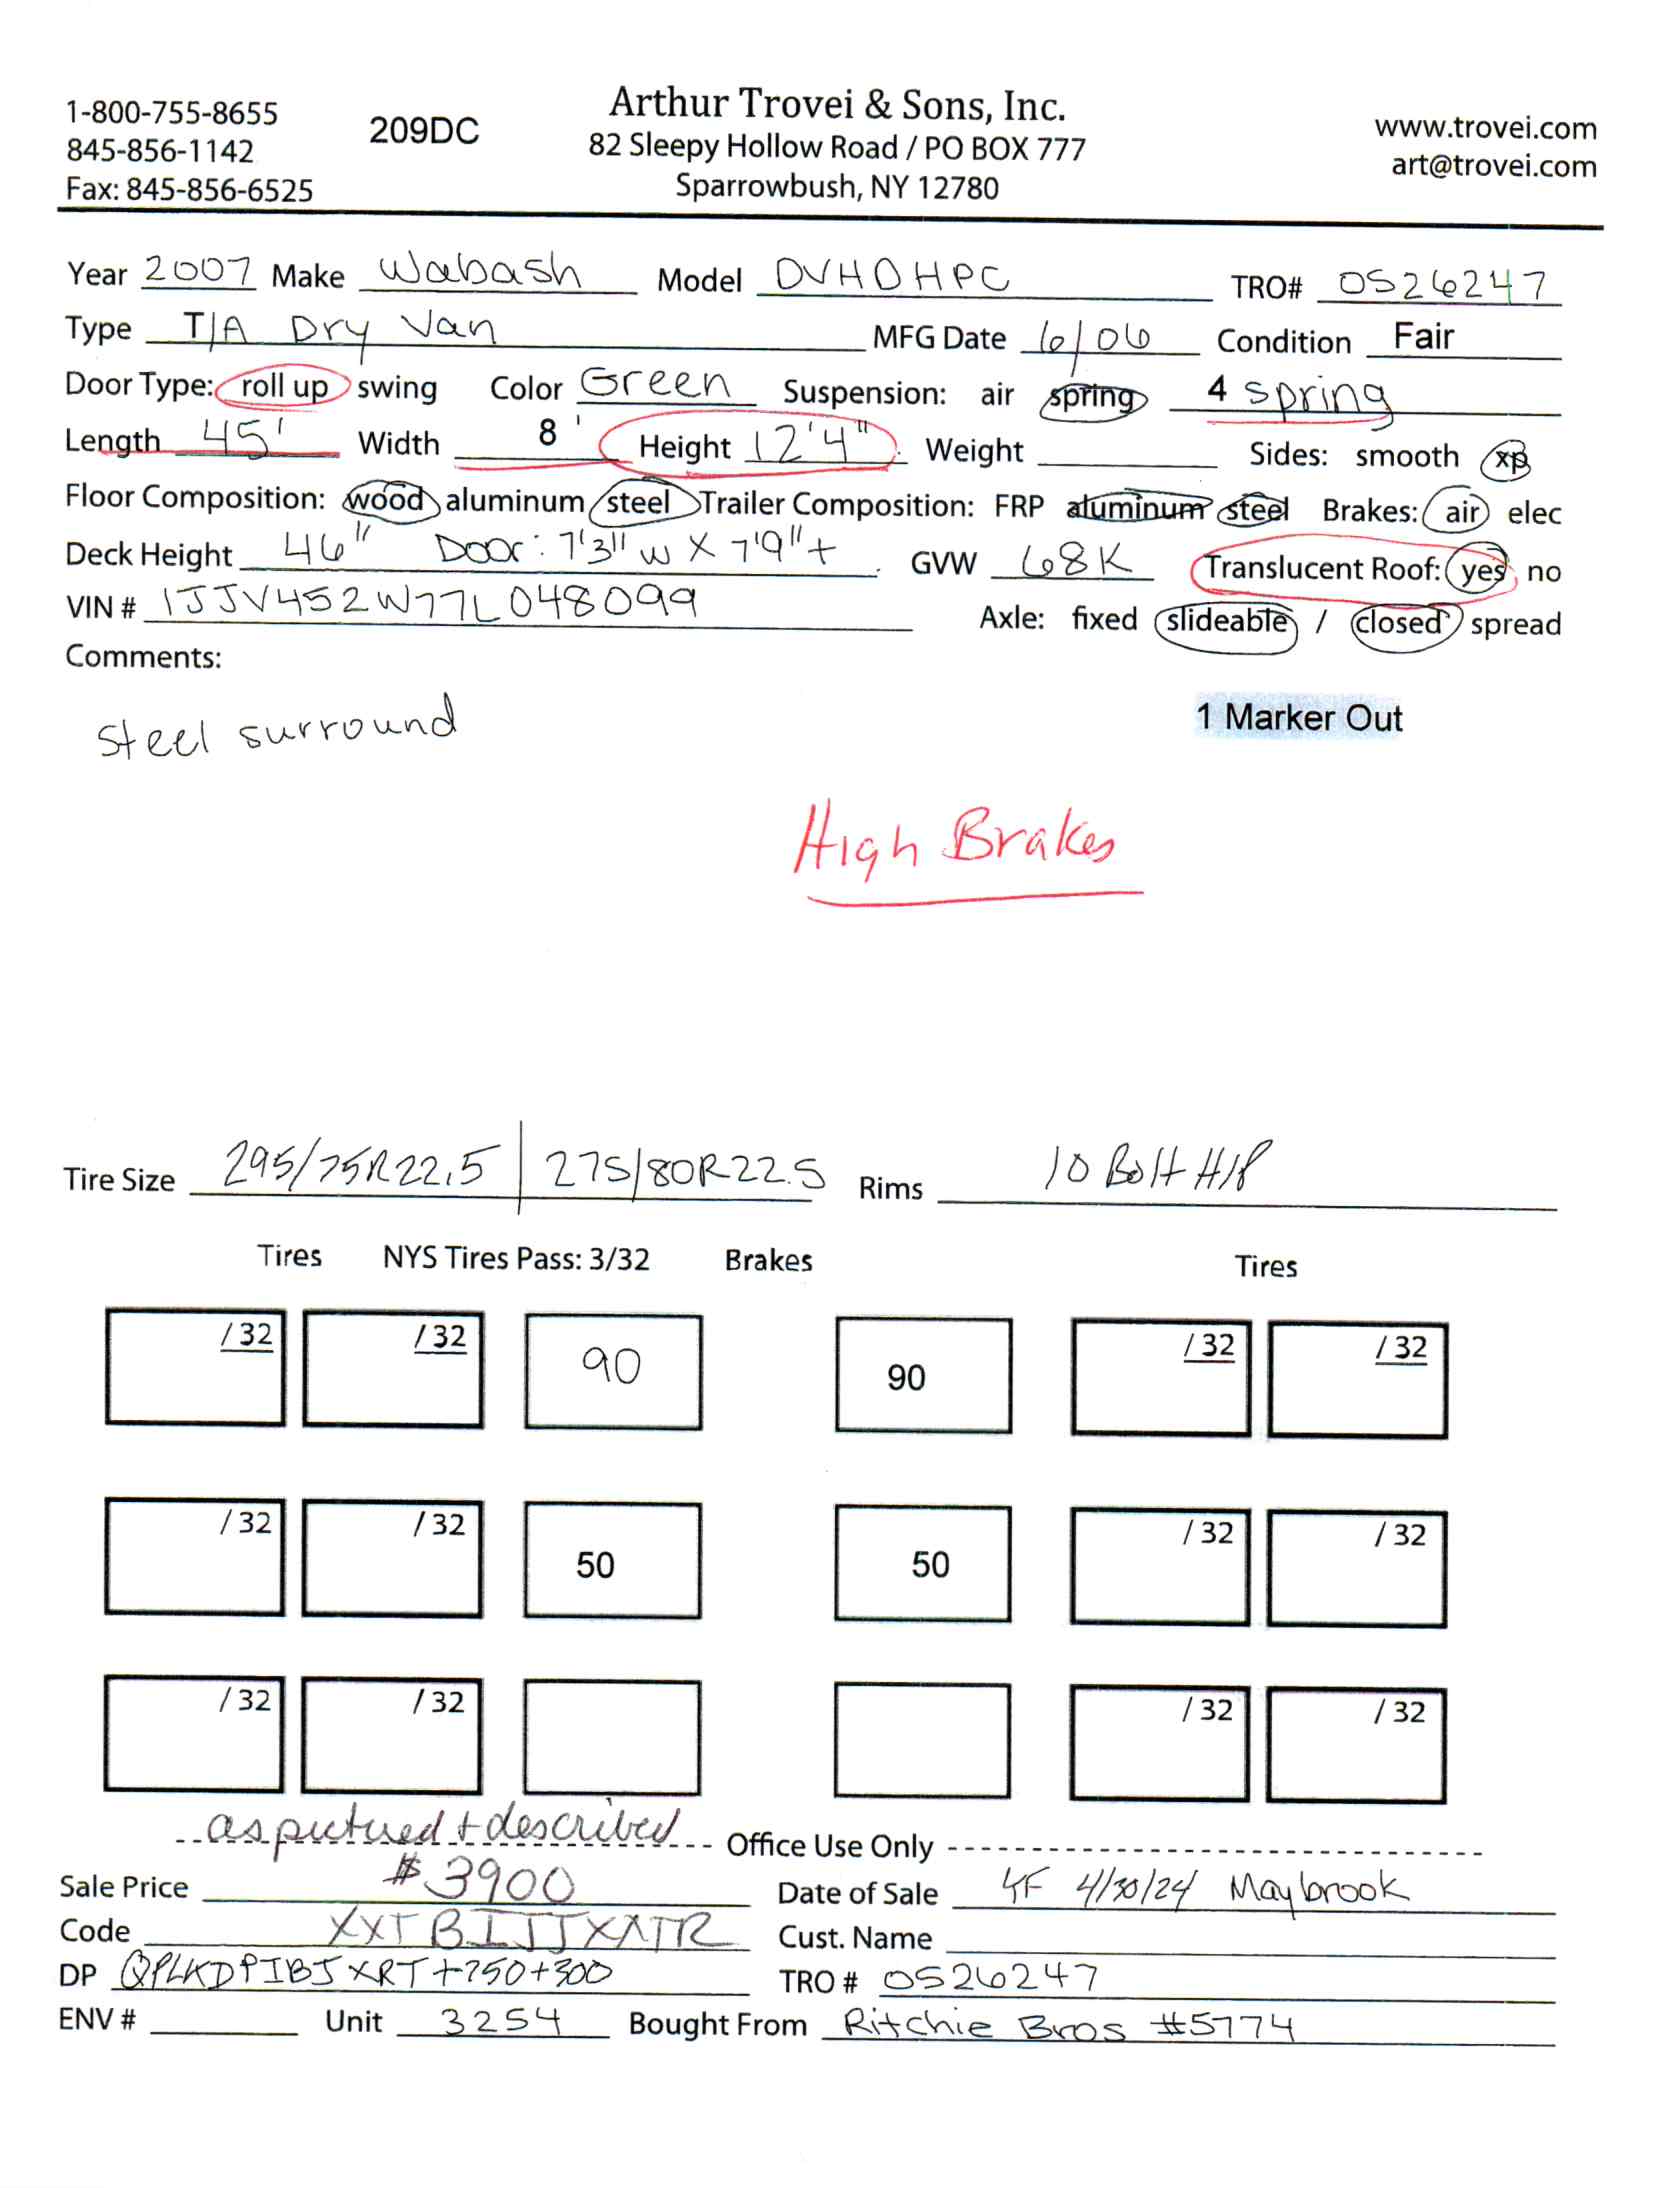 1-800-755-8655
845-856-1142
Fax: 845-856-6525
209DC
Arthur Trovei & Sons, Inc.
82 Sleepy Hollow Road / PO BOX 777
Sparrowbush, NY 12780
www.trovei.com
art@trovei.com
Year 2007 Make Wabash Model DVHDHPC TRO# 0526247
Type T/A Dry Van MFG Date 6/06 Condition Fair
Door Type: roll up swing Color Green Suspension: air spring 4 spring
Length 45' Width 8' Height 12'4" Weight Sides: smooth xp
Floor Composition: wood aluminum steel Trailer Composition: FRP aluminum steel Brakes: air elec
Deck Height 46" Door: 7'3" w X 7'9"+ GVW 68K Translucent Roof: yes no
VIN # 1JJV452W77L048099 Axle: fixed slideable / closed spread
Comments:
steel surround
1 Marker Out
High Brakes
Tire Size 295/75R22.5 | 275/80R22.5 Rims 10 Bolt H/P
Tires NYS Tires Pass: 3/32 Brakes Tires
/ 32 / 32 90 90 / 32 / 32
/ 32 / 32 50 50 / 32 / 32
/ 32 / 32 / 32 / 32
as pictured + described Office Use Only
Sale Price $3900 Date of Sale 4/30/24 Maybrook
Code Cust. Name
DP QPLKDPIBJXRT+750+300 TRO # 0526247
ENV # Unit 3254 Bought From Ritchie Bros #5774